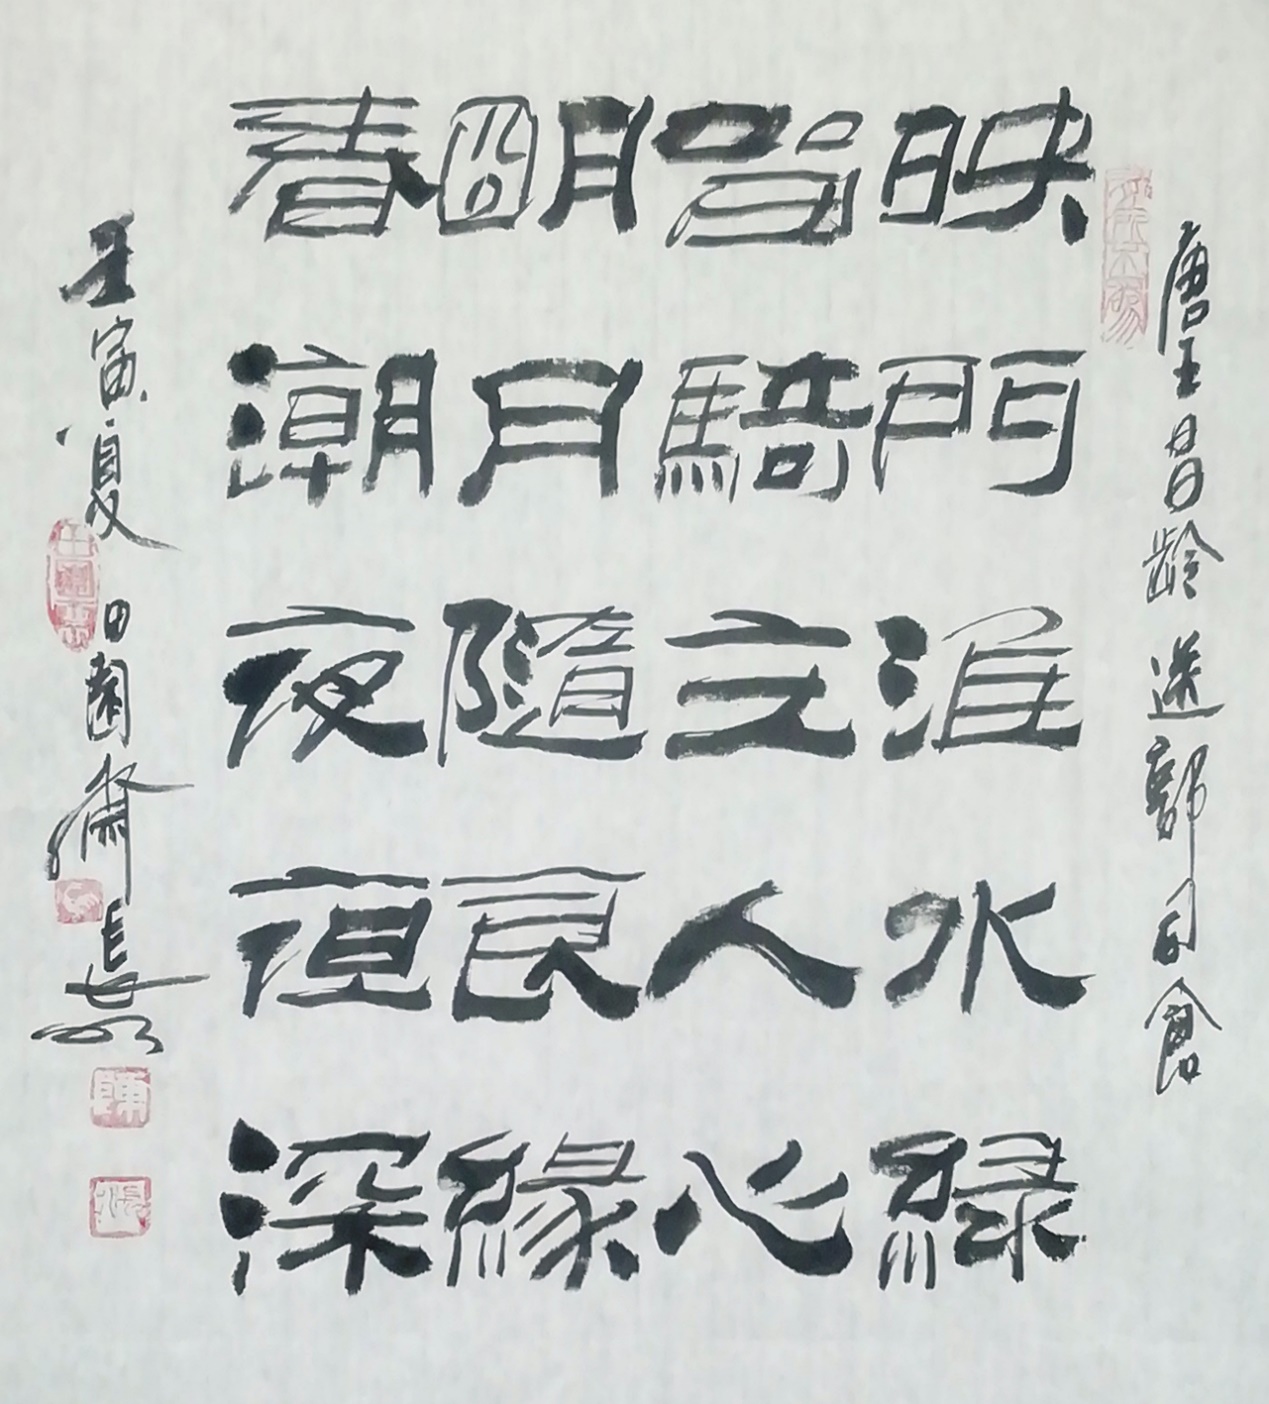 唐王昌龄送郭司倉
映門淮水緑
留騎主人心
明月隨良緣
春潮夜夜深
壬寅夏田園齋長
陳